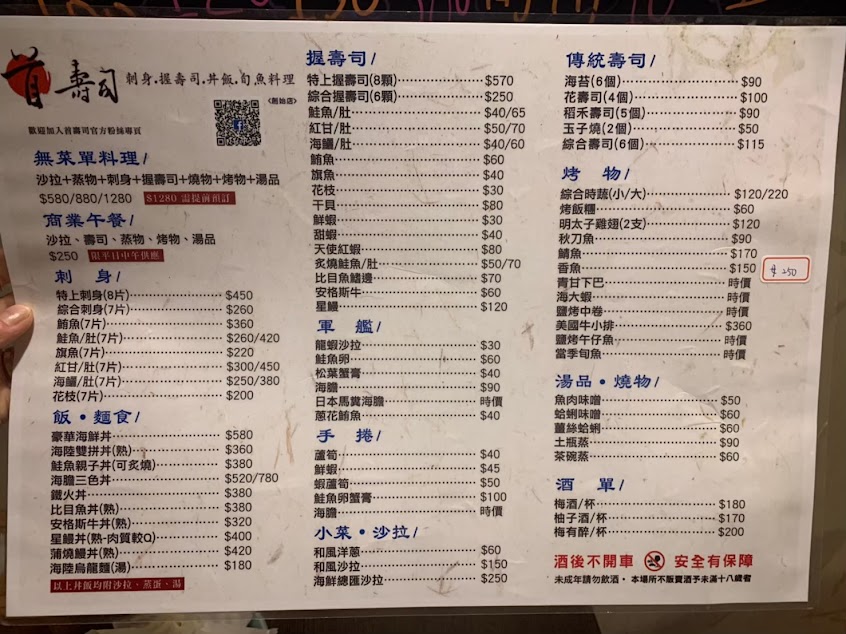 首壽司 刺身.握壽司.丼飯.旬魚料理
<創始店>
歡迎加入首壽司官方粉絲專頁
無菜單料理/
沙拉+蒸物+刺身+握壽司+燒物+烤物+湯品
$580/880/1280 $1280 需提前預訂
商業午餐/
沙拉、壽司、蒸物、烤物、湯品
$250 限平日中午供應
刺 身/
特上刺身(8片) $450
綜合刺身(7片) $260
鮪魚(7片) $360
鮭魚/肚(7片) $260/420
旗魚(7片) $220
紅甘/肚(7片) $300/450
海鱺/肚(7片) $250/380
花枝(7片) $200
飯•麵食/
豪華海鮮丼 $580
海陸雙拼丼(熟) $360
鮭魚親子丼(可炙燒) $380
海膽三色丼 $520/780
鐵火丼 $380
比目魚丼(熟) $380
安格斯牛丼(熟) $320
星鰻丼(熟-肉質較Q) $400
蒲燒鰻丼(熟) $420
海陸烏龍麵(湯) $180
以上丼飯均附沙拉、蒸蛋、湯
握壽司/
特上握壽司(8顆) $570
綜合握壽司(6顆) $250
鮭魚/肚 $40/65
紅甘/肚 $50/70
海鱺/肚 $40/60
鮪魚 $60
旗魚 $40
花枝 $30
干貝 $80
鮮蝦 $30
甜蝦 $40
天使紅蝦 $80
炙燒鮭魚/肚 $50/70
比目魚鰭邊 $70
安格斯牛 $60
星鰻 $120
軍 艦/
龍蝦沙拉 $30
鮭魚卵 $60
松葉蟹膏 $40
海膽 $90
日本馬糞海膽 時價
蔥花鮪魚 $40
手 捲/
蘆筍 $40
鮮蝦 $45
蝦蘆筍 $50
鮭魚卵蟹膏 $100
海膽 時價
小菜•沙拉/
和風洋蔥 $60
和風沙拉 $150
海鮮總匯沙拉 $250
傳統壽司/
海苔(6個) $90
花壽司(4個) $100
稻禾壽司(5個) $90
玉子燒(2個) $50
綜合壽司(6個) $115
烤 物/
綜合時蔬(小/大) $120/220
烤飯糰 $60
明太子雞翅(2支) $120
秋刀魚 $90
鯖魚 $170
香魚 $150 $250
青甘下巴 時價
海大蝦 時價
鹽烤中卷 時價
美國牛小排 $360
鹽烤午仔魚 時價
當季旬魚 時價
湯品•燒物/
魚肉味噌 $50
蛤蜊味噌 $60
薑絲蛤蜊 $60
土瓶蒸 $90
茶碗蒸 $60
酒 單/
梅酒/杯 $180
柚子酒/杯 $170
梅有醉/杯 $200
酒後不開車 安全有保障
未成年請勿飲酒• 本場所不販賣酒予未滿十八歲者